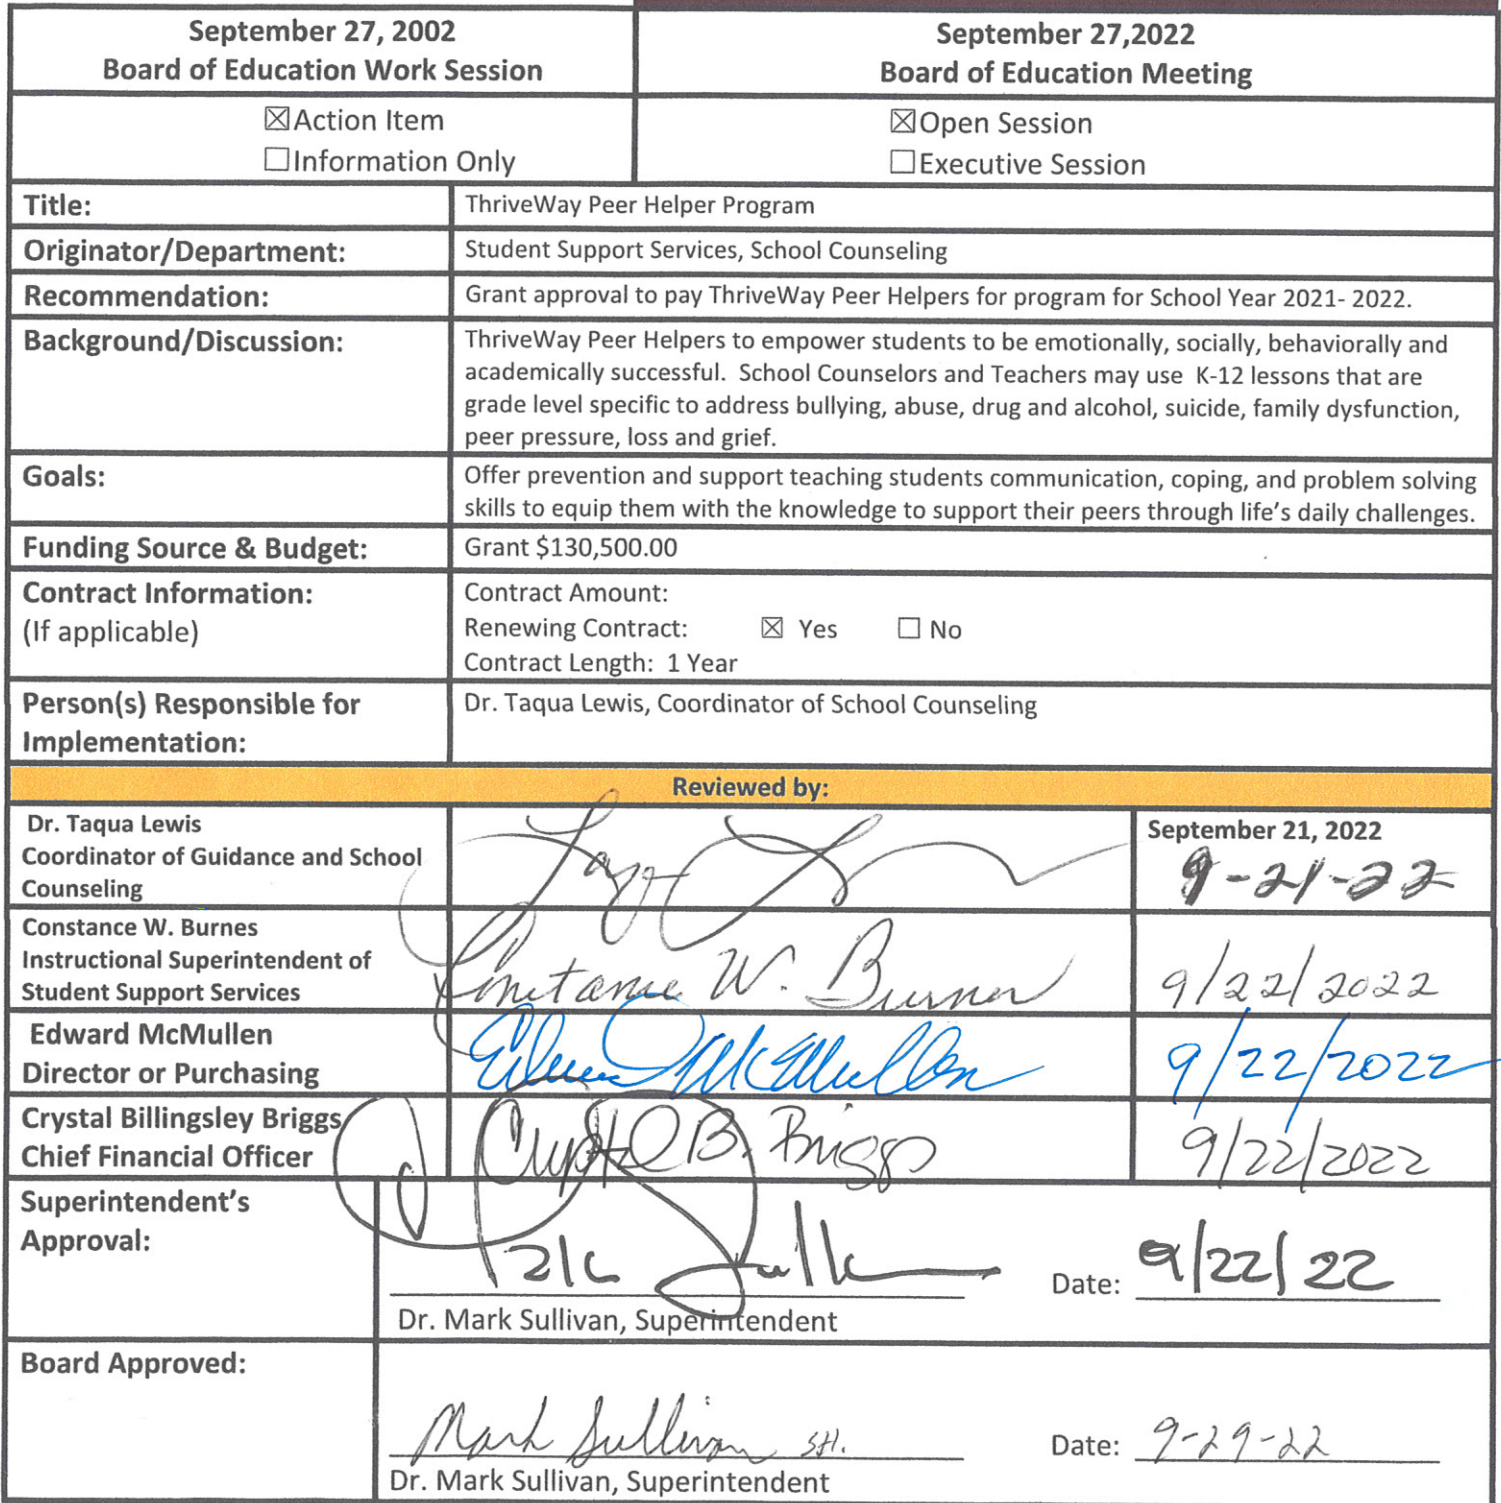 September 27, 2002
Board of Education Work Session
September 27,2022
Board of Education Meeting
☒Action Item
☐Information Only
☒Open Session
☐Executive Session
Title:
ThriveWay Peer Helper Program
Originator/Department:
Student Support Services, School Counseling
Recommendation:
Grant approval to pay ThriveWay Peer Helpers for program for School Year 2021- 2022.
Background/Discussion:
ThriveWay Peer Helpers to empower students to be emotionally, socially, behaviorally and
academically successful. School Counselors and Teachers may use K-12 lessons that are
grade level specific to address bullying, abuse, drug and alcohol, suicide, family dysfunction,
peer pressure, loss and grief.
Goals:
Offer prevention and support teaching students communication, coping, and problem solving
skills to equip them with the knowledge to support their peers through life's daily challenges.
Funding Source & Budget:
Grant $130,500.00
Contract Information:
(If applicable)
Contract Amount:
Renewing Contract: ☒ Yes ☐ No
Contract Length: 1 Year
Person(s) Responsible for
Implementation:
Dr. Taqua Lewis, Coordinator of School Counseling
Reviewed by:
Dr. Taqua Lewis
Coordinator of Guidance and School
Counseling
September 21, 2022
9-21-22
Constance W. Burnes
Instructional Superintendent of
Student Support Services
Constance W. Burnes
9/22/2022
Edward McMullen
Director or Purchasing
McMullen
9/22/2022
Crystal Billingsley Briggs
Chief Financial Officer
Crystal B. Briggs
9/22/2022
Superintendent's
Approval:
Date: 9/22/22
Dr. Mark Sullivan, Superintendent
Board Approved:
Mark Sullivan SH.
Date: 9-29-22
Dr. Mark Sullivan, Superintendent